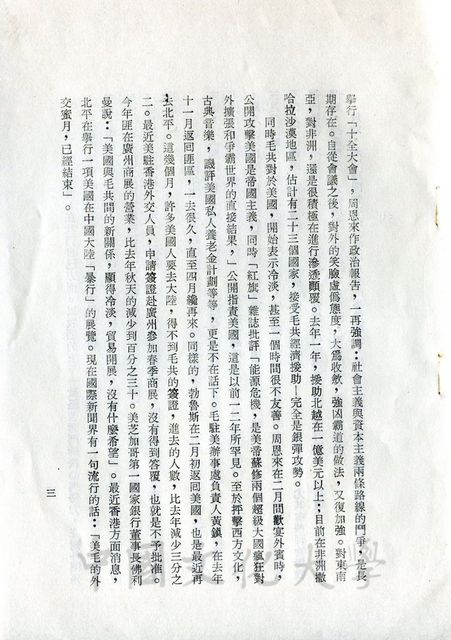 舉行「十全大會」，周恩來作政治報告，一再強調：社會主義與資本主義兩條路線的鬥爭，是長
期存在。自從會議之後，對外的笑臉虛僞態度，大爲收斂，強凶霸道的做法，又復加強。對東南
亞，對非洲，還是很積極在進行滲透顚覆。去年一年，援助北越在一億美元以上：目前在非洲撒
哈拉沙漠地區，估計有二十三個國家，接受毛共經濟援助—完全是銀彈攻勢。
同時毛共對於美國，開始表示冷淡，甚至一個時間很不友善。周恩來在二月間歡宴外賓時，
公開攻擊美國是帝國主義，同時「紅旗」雜誌批評「能源危機，是美帝蘇修兩個超級大國瘋狂對
外擴張和爭霸世界的直接結果，」公開指責美國，這是以前一二年所罕見。至於抨擊西方文化，
古典音樂，譏評美國私人養老金計劃等等，更是不在話下。毛駐美辦事處負責人黃鎮，在去年
十一月返回匪區，一去很久，直至四月纔再來。同樣的，勃魯斯在二月初返回美國，也是最近再
去北平。這幾個月，許多美國人要去大陸，得不到毛共的簽證，進去的人數，比去年減少三分之
二。最近美駐香港外交人員，申請簽證赴廣州參加春季商展，沒有得到答覆，也就是不予批准。
今年匪在廣州商展的營業，比去年秋天的減少到百分之三十。美芝加哥第一國家銀行董事長佛利
曼說：「美國與毛共間的新關係，顯得冷淡，貿易開展，沒有什麼希望」。最近香港方面消息，
北平在舉行一項美國在中國大陸「暴行」的展覽。現在國際新聞界有一句流行的話：「美毛的外
交蜜月，已經結束」。
三
中國文化大學